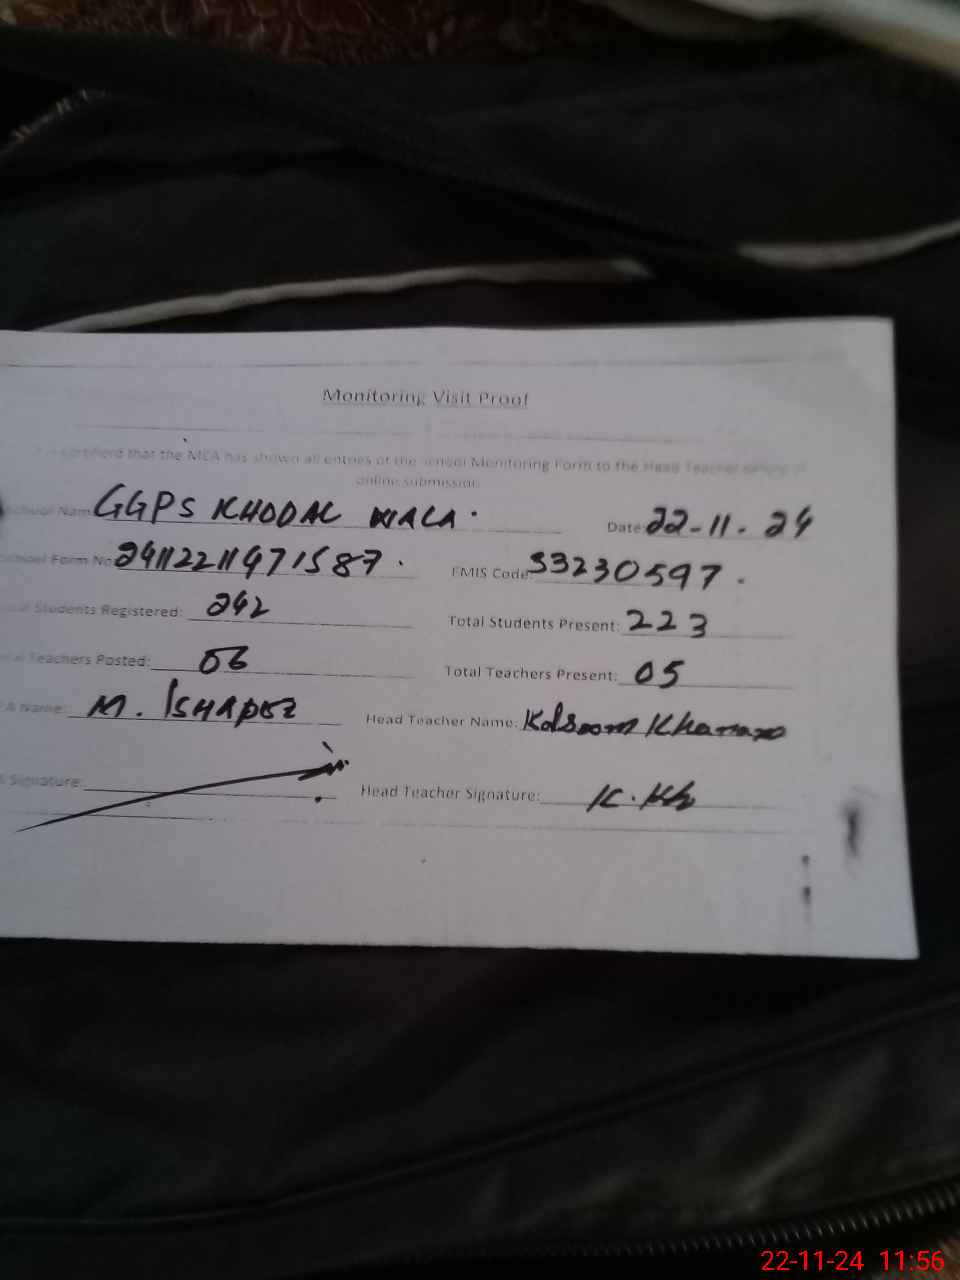 Monitoring Visit Proof
certified that the MEA has shown all entries of the School Monitoring Form to the Head Teacher before
online submission
School Name GGPS KHODAL WALA. Date: 22-11-24
School Form No 24112211971587. EMIS Code: 33230597.
Students Registered: 242 Total Students Present: 223
Teachers Posted: 06 Total Teachers Present: 05
A Name: M. Head Teacher Name: Kolsoom
Signature: Head Teacher Signature: K.Kh
22-11-24 11:56